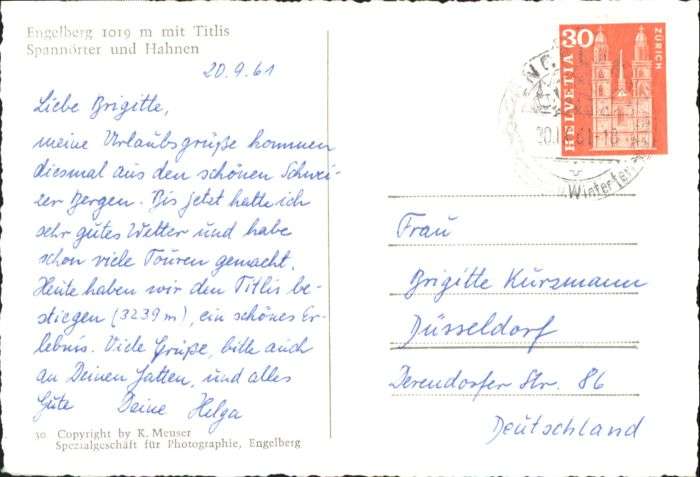 Engelberg 1019 m mit Titlis
Spannörter und Hahnen
20.9.61
Liebe Brigitte,
meine Urlaubsgrüße kommen
diesmal aus den schönen Schwei-
zer Bergen. Bis jetzt hatte ich
sehr gutes Wetter und habe
schon viele Touren gemacht.
Heute haben wir den Titlis be-
stiegen (3239 m), ein schönes Er-
lebnis. Viele Grüße, bitte auch
an Deinen Gatten, und alles
Gute Deine Helga
30 Copyright by K. Meuser
Spezialgeschäft für Photographie, Engelberg
30
HELVETIA
ZÜRICH
Winterferien
Frau
Brigitte Kürzmann
Düsseldorf
Derendorfer Str. 86
Deutschland